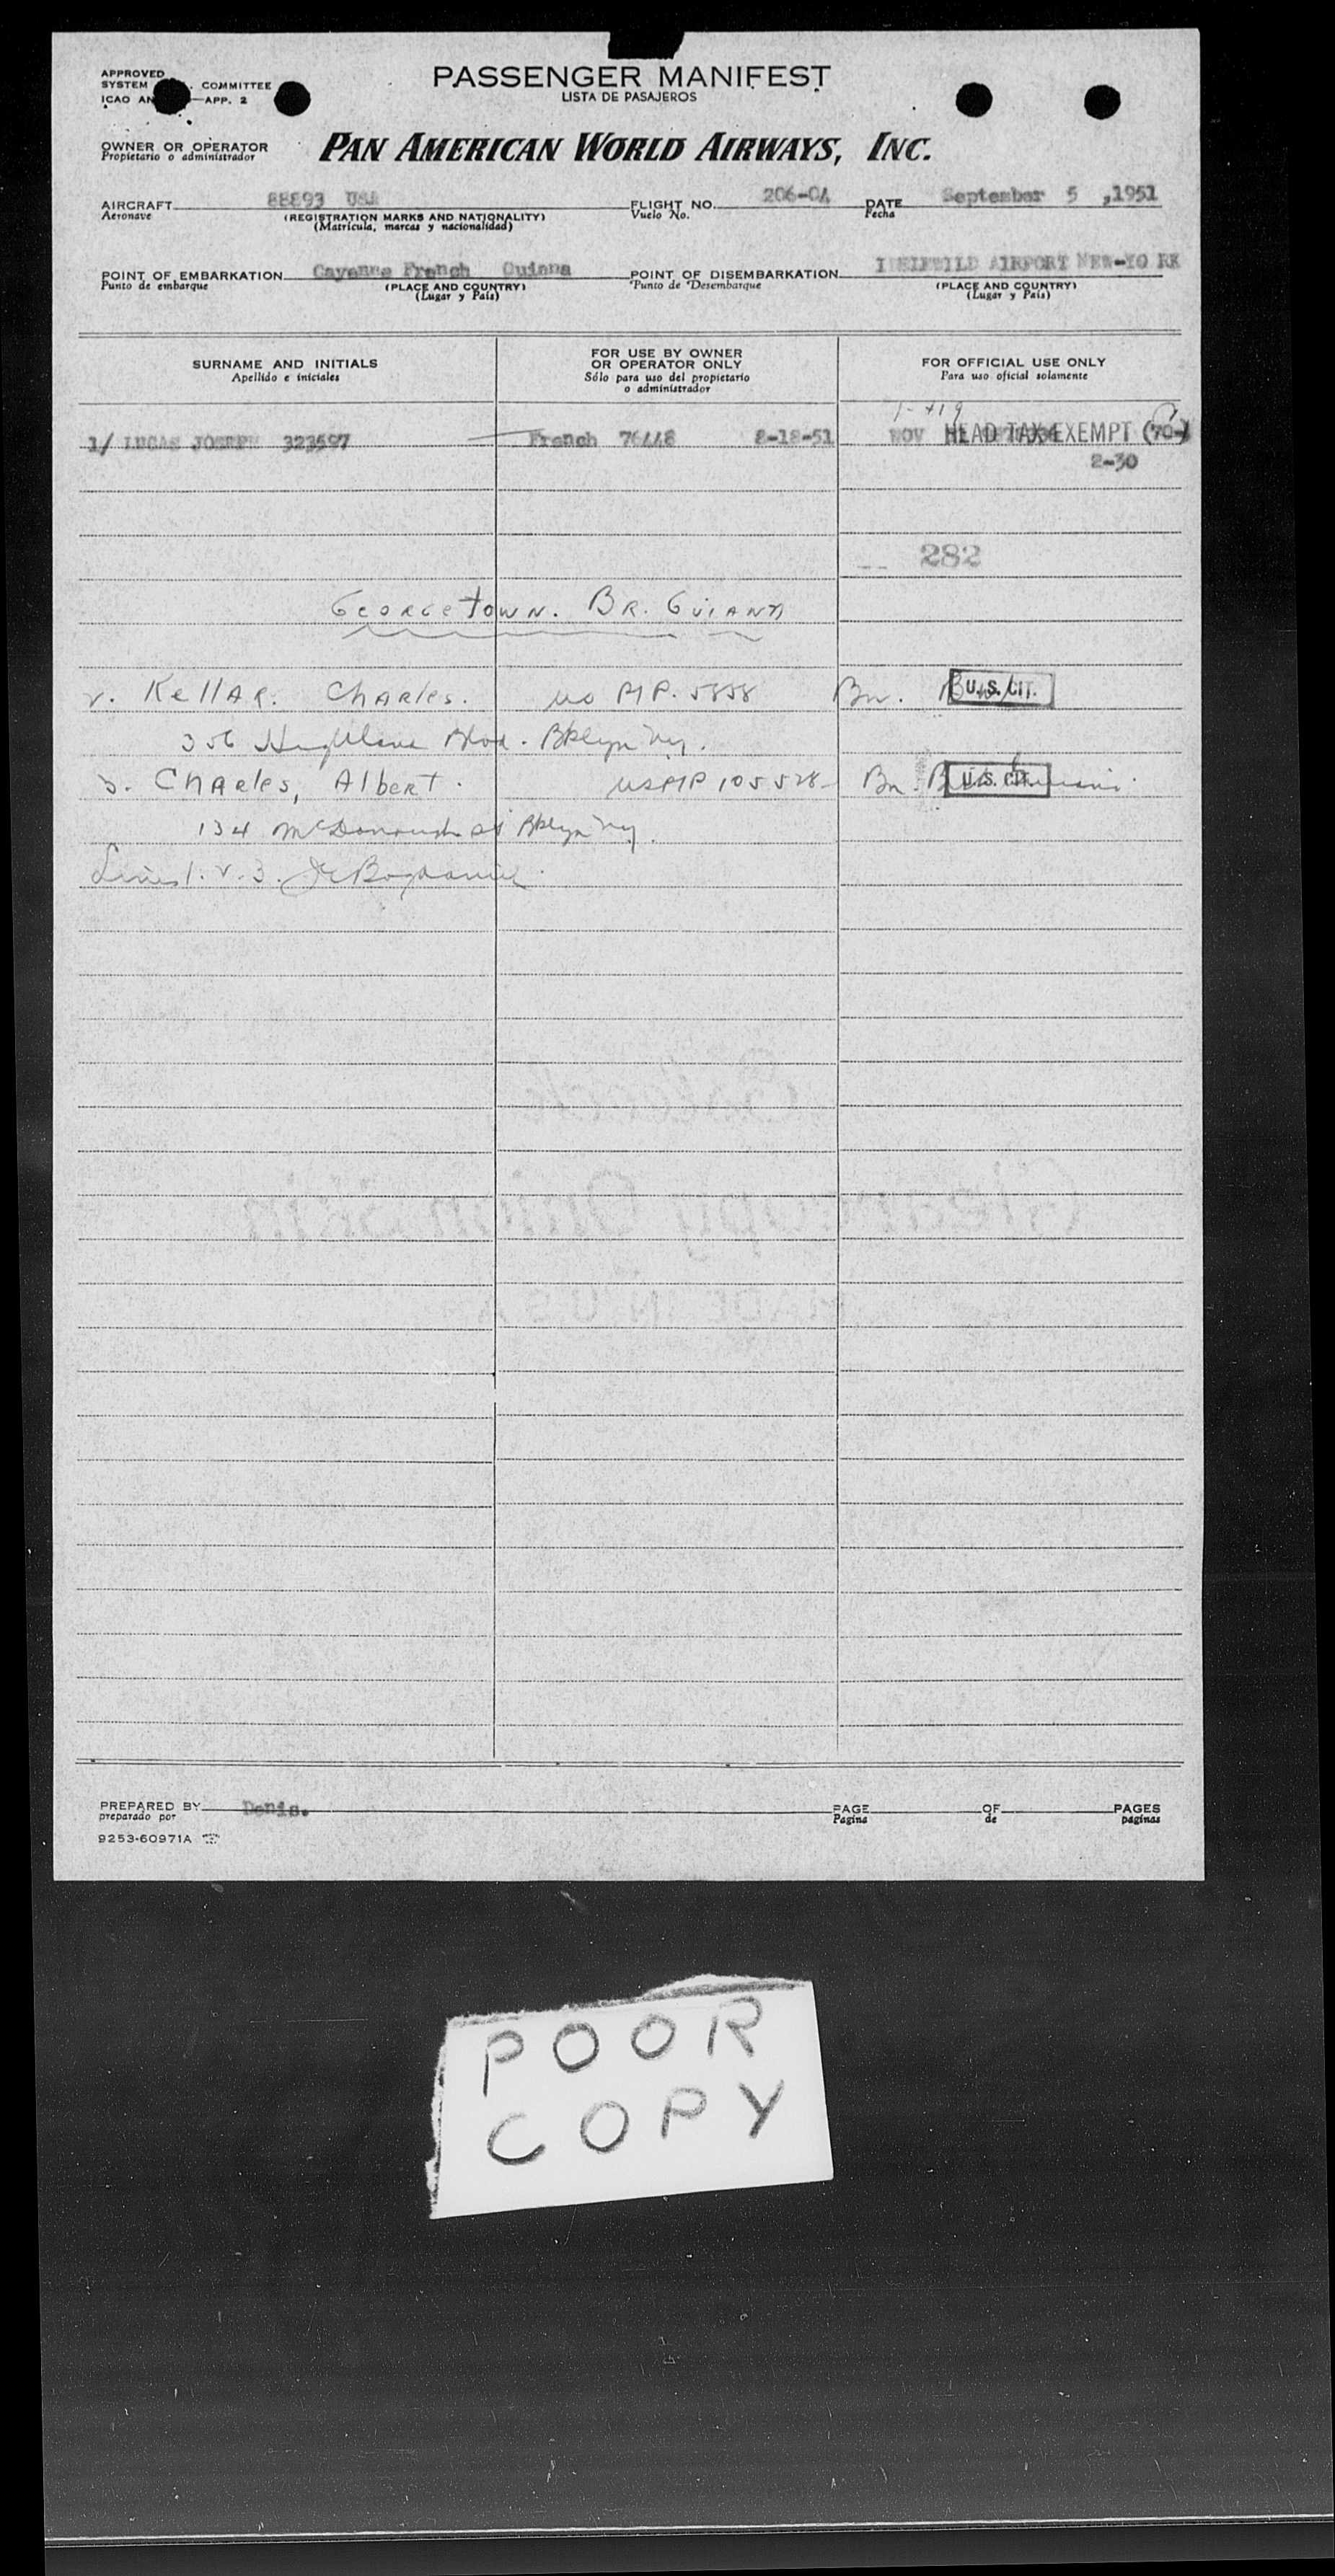 APPROVED
SYSTEM COMMITTEE
ICAO AN —APP. 2
PASSENGER MANIFEST
LISTA DE PASAJEROS
OWNER OR OPERATOR
Propietario o administrador
PAN AMERICAN WORLD AIRWAYS, INC.
AIRCRAFT 88893 USA FLIGHT NO. 206-04 DATE September 5 ,1951
Aeronave (REGISTRATION MARKS AND NATIONALITY) Vuelo No. Fecha
(Matricula, marcas y nacionalidad)
POINT OF EMBARKATION Cayenne French Guiana POINT OF DISEMBARKATION IDELEWILD AIRPORT NEW-YO RK
Punto de embarque (PLACE AND COUNTRY) Punto de Desembarque (PLACE AND COUNTRY)
(Lugar y País) (Lugar y País)
SURNAME AND INITIALS FOR USE BY OWNER OR OPERATOR ONLY FOR OFFICIAL USE ONLY
Apellido e iniciales Sólo para uso del propietario o administrador Para uso oficial solamente
1/ LUCAS JOSEPH 323597 French 76448 8-18-51 NOV HEAD TAX EXEMPT (70-)
2-30
282
Georgetown. Br. Guiana
2. Kellar. Charles. US PP. 5858 Bn. U.S. CIT.
356 Blvd. Bklyn ny.
3. Charles, Albert. USPP 105528 Bn. U.S. CIT.
134 McDonough St Bklyn ny.
Lines 1. 2. 3.
Clearcopy Onion Skin
MADE IN U S A
PREPARED BY Denis. PAGE OF PAGES
preparado por Pagina de paginas
9253-60971A
POOR
COPY